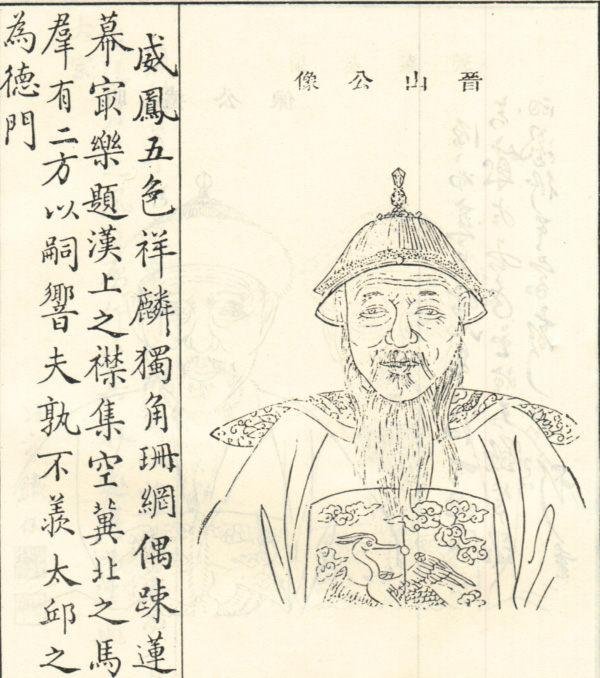 晉山公像
威鳳五色祥麟獨角珊網偶踈蓮
幕㝡樂題漢上之襟集空冀北之馬
羣有二方以嗣響夫孰不羨太邱之
為德門